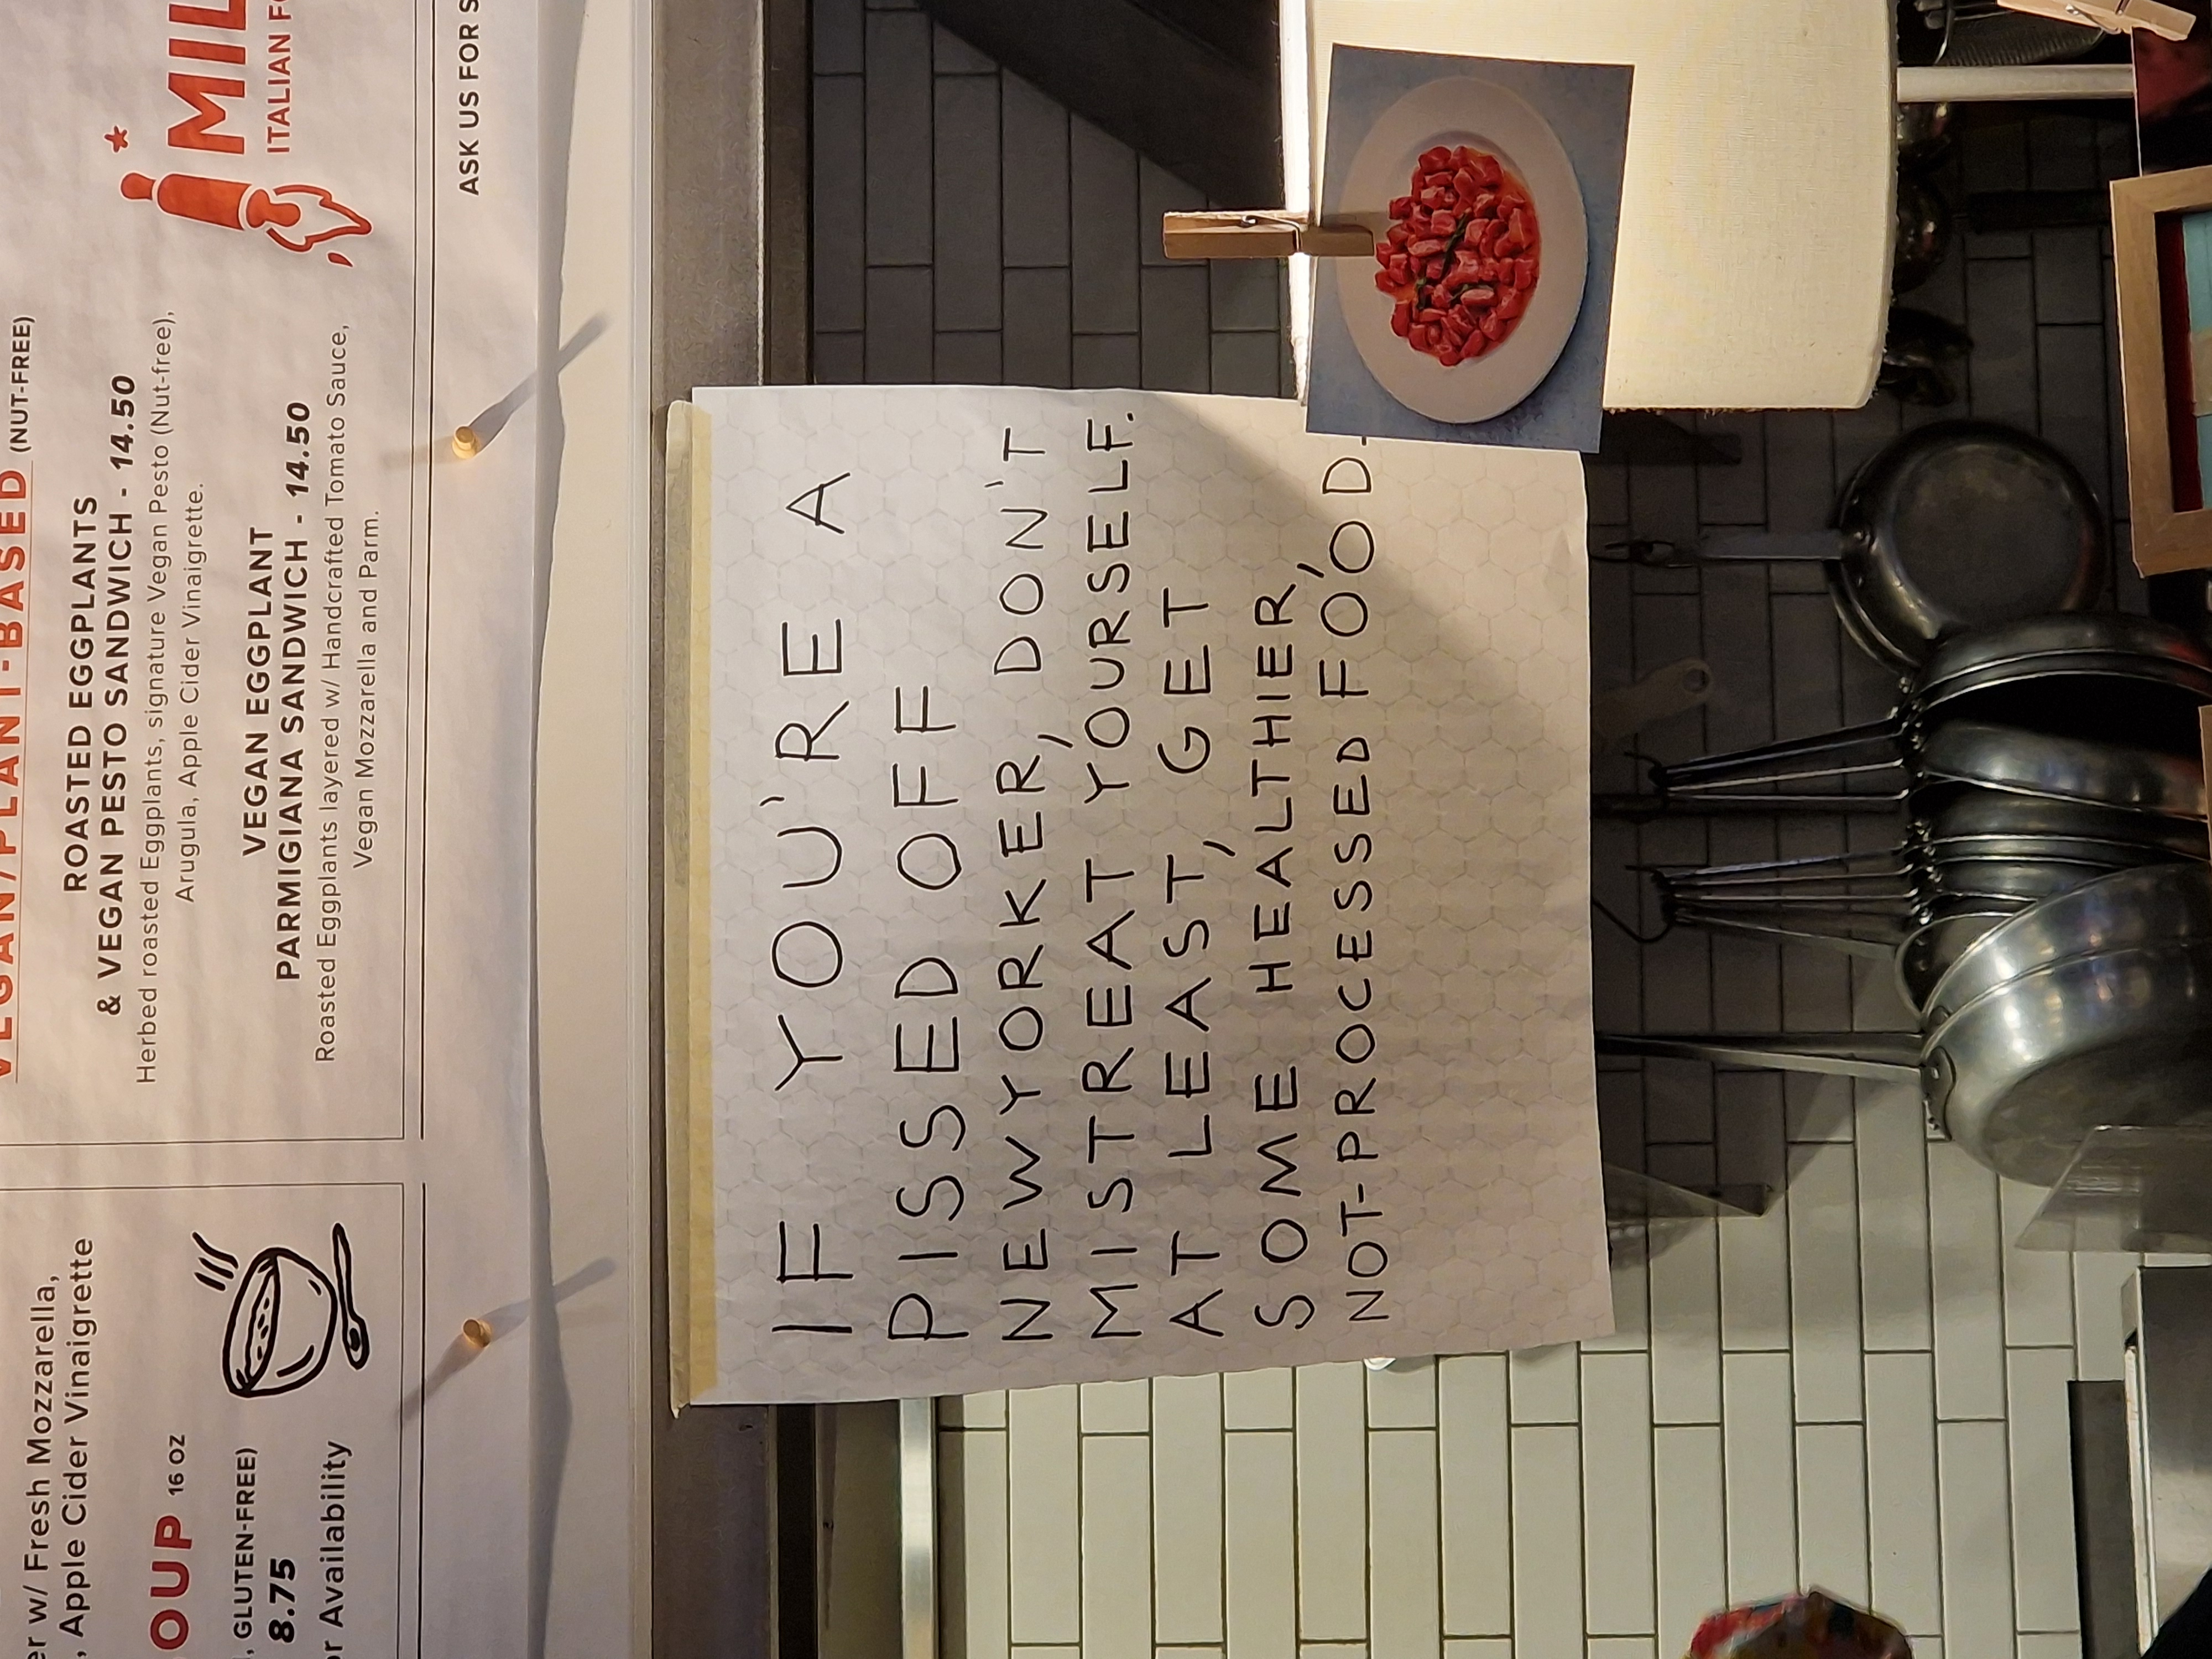 er w/ Fresh Mozzarella,
, Apple Cider Vinaigrette
OUP 16 OZ
, GLUTEN-FREE)
8.75
or Availability
VEGAN/PLANT-BASED (NUT-FREE)
ROASTED EGGPLANTS
& VEGAN PESTO SANDWICH - 14.50
Herbed roasted Eggplants, signature Vegan Pesto (Nut-free),
Arugula, Apple Cider Vinaigrette.
VEGAN EGGPLANT
PARMIGIANA SANDWICH - 14.50
Roasted Eggplants layered w/ Handcrafted Tomato Sauce,
Vegan Mozzarella and Parm.
MIL
ITALIAN FO
ASK US FOR S
IF YOU'RE A
PISSED OFF
NEWYORKER, DON'T
MISTREAT YOURSELF.
AT LEAST, GET
SOME HEALTHIER,
NOT-PROCESSED FOOD-